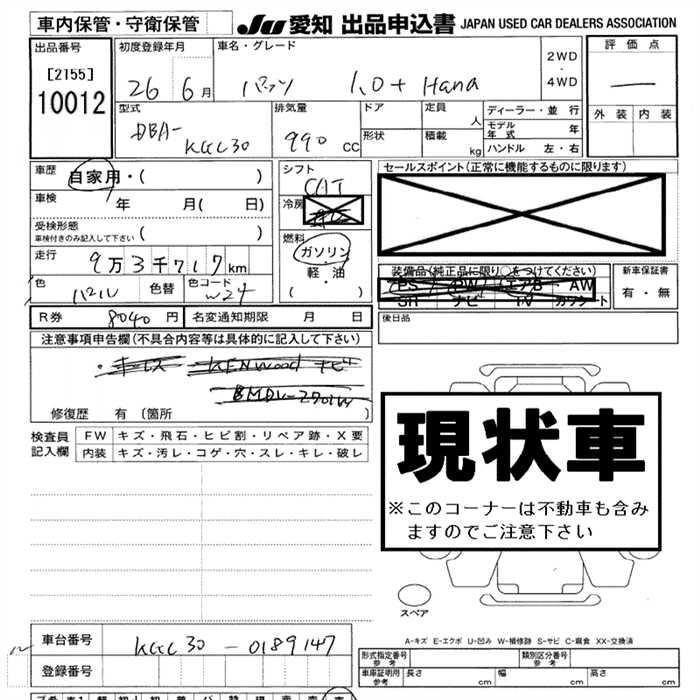 車内保管・守衛保管
JU 愛知 出品申込書 JAPAN USED CAR DEALERS ASSOCIATION
出品番号
[2155]
10012
初度登録年月
26 6月
車名・グレード
パッソ 1.0+ Hana
2WD
・
4WD
評価点
外装 内装
型式
DBA-
KGC30
排気量
990 cc
ドア
形状
定員 人
積載 kg
ディーラー・並行
モデル年式 年
ハンドル 左・右
車歴
自家用・( )
車検 年 月( 日)
受検形態
車検付きのみ記入して下さい ( )
走行
9万3千717km
色
パール
色替
色コード
W24
シフト
CAT
冷房
燃料
ガソリン
・
軽・油
( )
セールスポイント(正常に機能するものに限ります)
装備品(純正品に限り○をつけてください)
PS PW エアB AW
SR ナビ TV カワシート
新車保証書
有・無
後日品
R券 8040円
名変通知期限 月 日
注意事項申告欄(不具合内容等は具体的に記入して下さい)
・キーレス KENWOOD ナビ
修復歴 有 〔箇所 〕
検査員
記入欄
FW キズ・飛石・ヒビ割・リペア跡・X要
内装 キズ・汚レ・コゲ・穴・スレ・キレ・破レ
現状車
※このコーナーは不動車も含み
ますのでご注意下さい
スペア
A-キズ E-エクボ U-凹み W-補修跡 S-サビ C-腐食 XX-交換済
車台番号 KGC30-0189147
登録番号
形式指定番号
参考
類別区分番号
参考
車庫証明用
参考
長さ cm
幅 cm
高さ cm